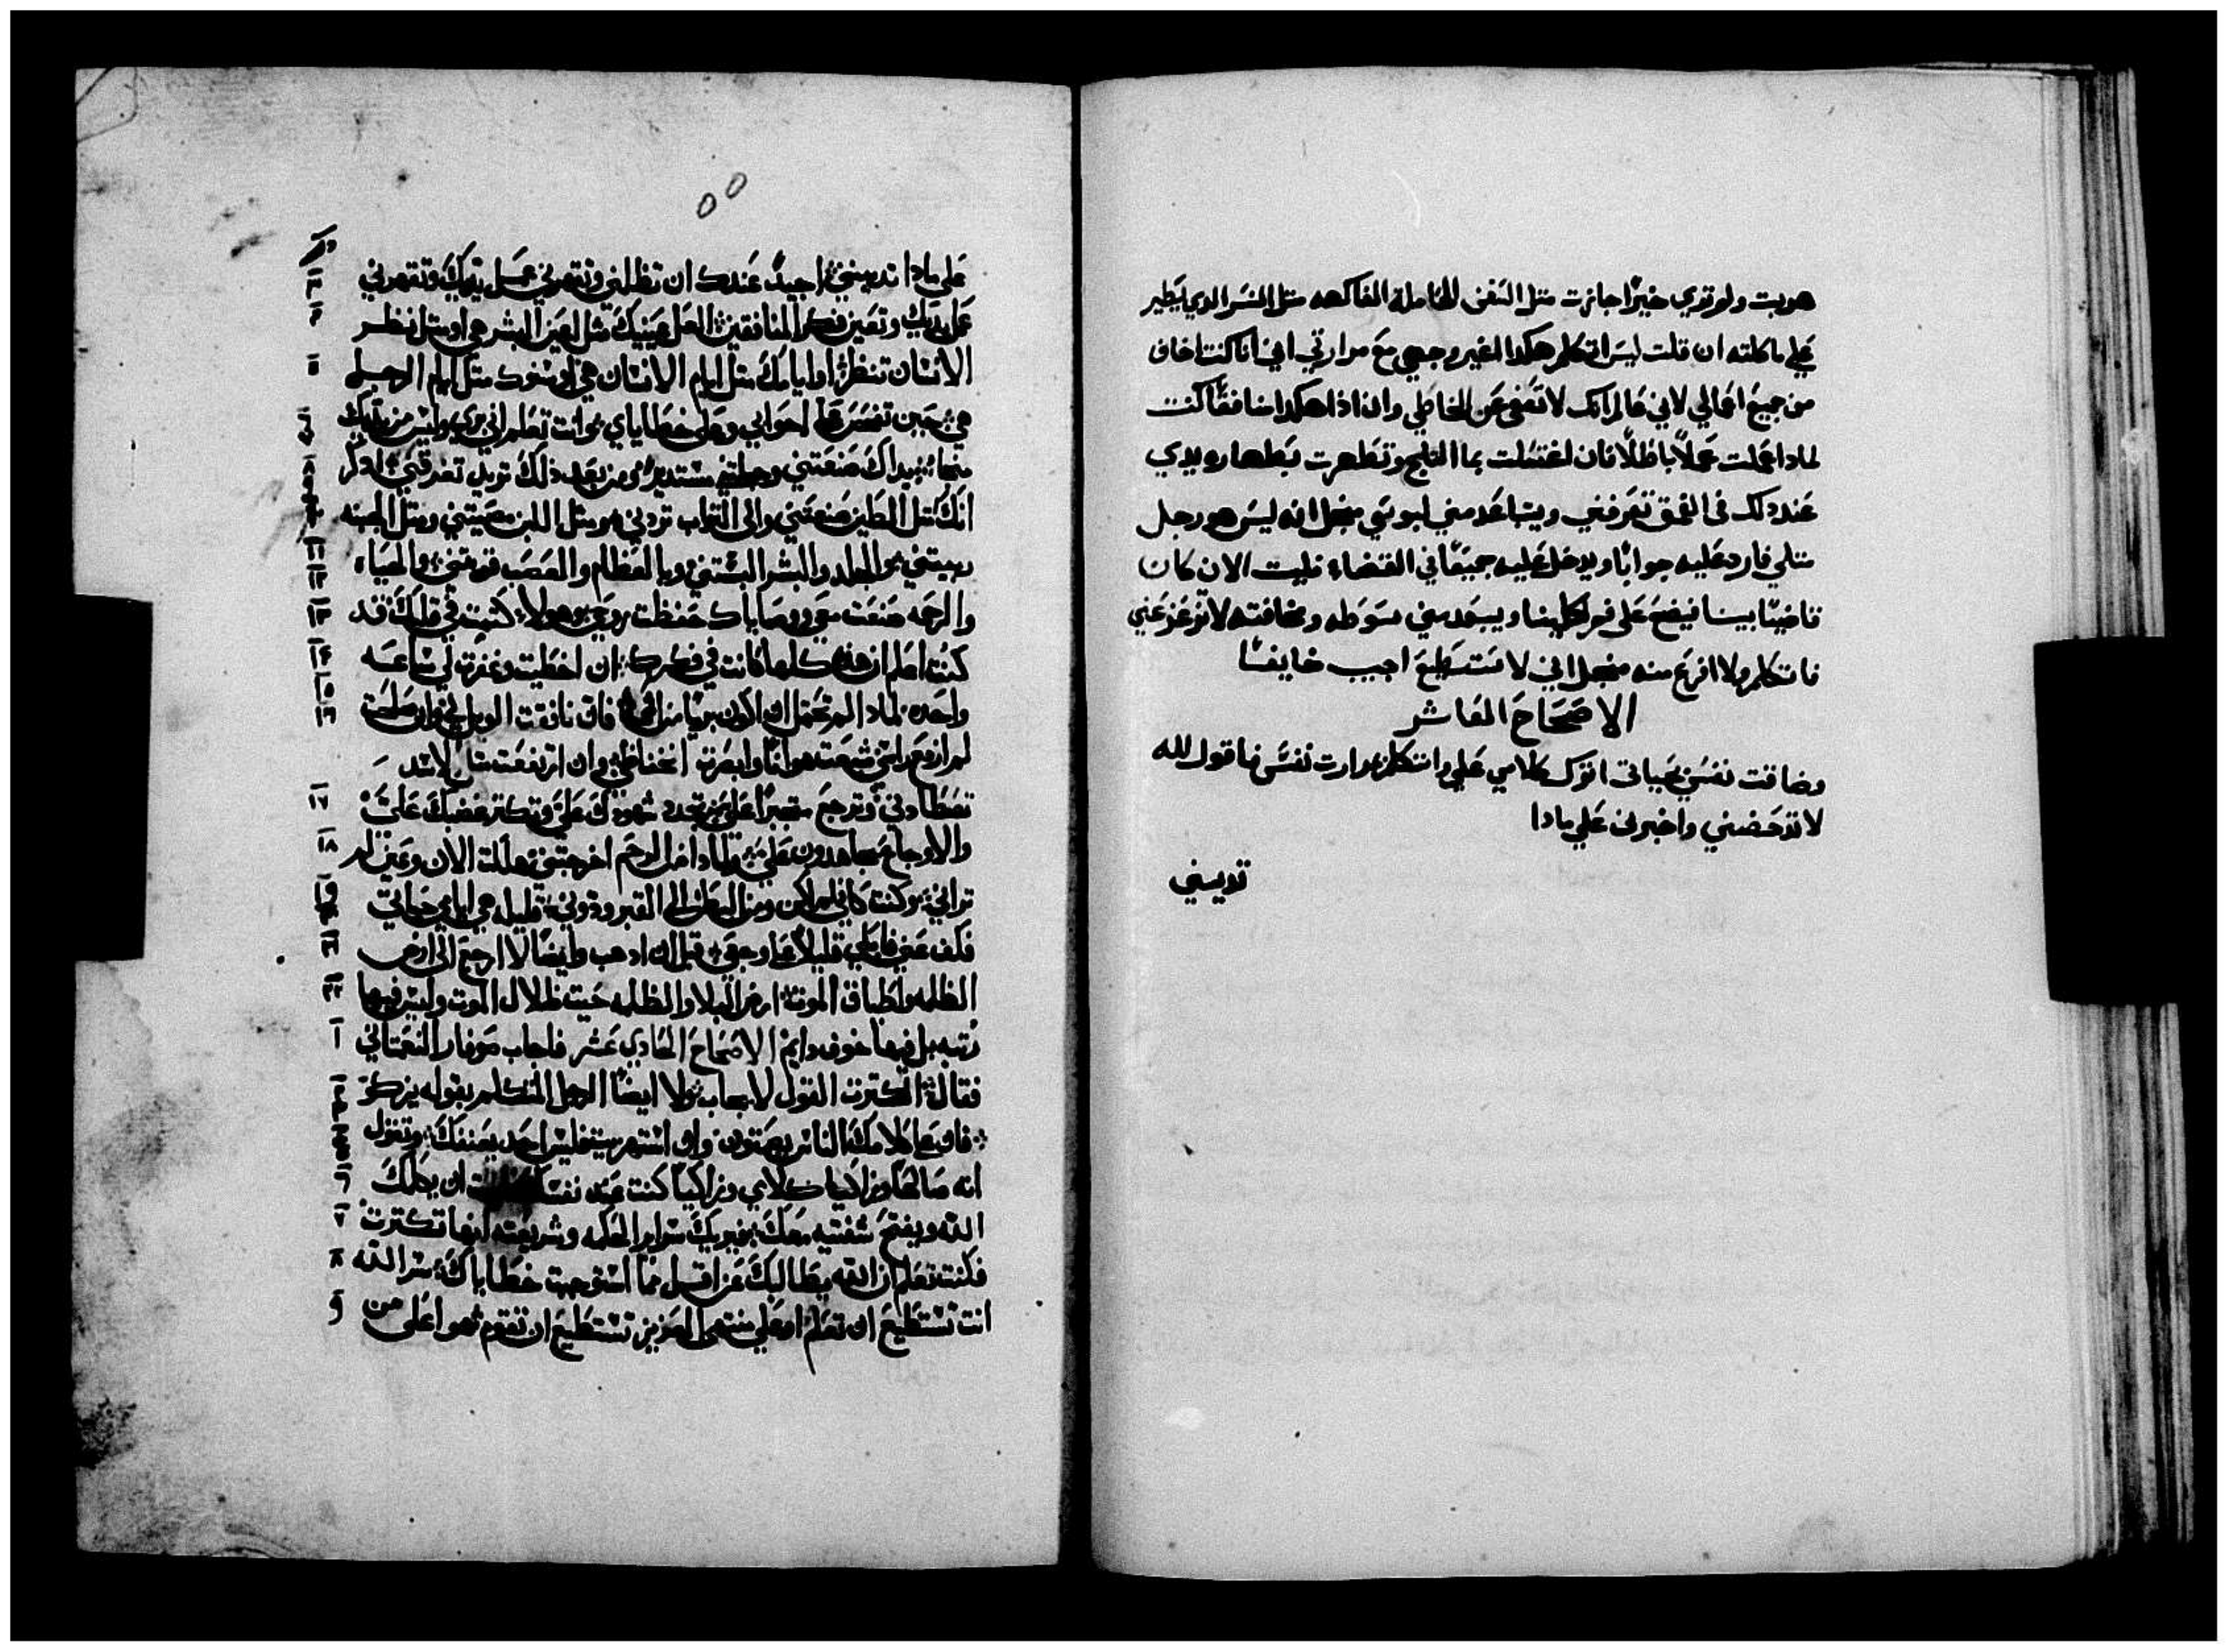 هربت ولم تري خيرًا جازت مثل السفن الحاملة الفاكهه مثل النسر الدي يطير
علي ماكلته ان قلت ليس اتكلم هكدا اغير وجهي مع مرارتي اني انا كنت اخاف
من جميع اعمالي لاني عالم انك لا تعفى عن الخاطي وان اذا هكدا منافقًا كنت
لمادا عملت عملًا باطلًا فان اغتسلت بما الثلج وتطهرت بطهاره يدي
عند دلك في الحمق تغرقني ويتباعد مني لبوسي من اجل انه ليس هو رجل
مثلي فارد عليه جوابًا ويدخل عليه جميعًا في القضاء فليت الان كان
قاضيًا بيننا فيضع على فم كلينا ويبعد مني سوطه ومخافته لا تزعزعني
فاتكلم ولا افزع منه من اجل اني لا استطيع اجيب خايفًا
الاصحاح العاشر
وضاقت نفسي بحياتى اترك كلامي علي واتكلم بمرارت نفسي فاقول لله
لا تدحضني واخبرنى علي مادا
تدينني
٥٥
علي مادا تدينني اجيدً عندك ان تظلمني وتقهرني عمل يديك وتقهرني
عمل يديك وتعين فكر المنافقين العل عينيك مثل عين البشر هي او مثل نظر
الانسان تنظر او ايامك مثل ايام الانسان هي او سنوك مثل ايام الرجل
هي حين تفسر عن احوالي وعلى خطاياي وانت تعلم اني بري وليس من يديك
منجا يداك صنعتني وجبلتني مستديرً ومن بعد ذلك تريد تغرقني ادكر
انك مثل الطين صنعتني والى التراب تردني ومثل اللبن عصيتني ومثل الجبنه
ربيتني والجلد والبشر البستني وبالعظام والعصب قومتني والحياه
والرحمه صنعت معي ووصاياك حفظت روحي وهولا كتبت في قلبك قد
كنت اعلم ان هذه كلها كانت في فكرك ان اخطيت وغفرت لي ساعه
واحده لمادا لم تحتمل ان اكون بريًا من اثمي فان نافقت الويل لي وان صلحت
لم ارفع راسي شبعت هوانًا وابصرت انخفاضي وان ارتفعت مثل الاسد
تصطادني وترجع متجبرًا علي تجدد شهودك علي وتكثر غضبك علي
والاوجاع مجاهدون علي ولمادا من الرحم اخرجتني هلكت الان وعين لم
تراني وكنت كاني لم اكن ومن البطن الى القبر ودوني قليله هي ايامي حياتي
فكف عني فابكي قليلًا على وجعي قبل ان ادهب وايضًا لا ارجع الى ارض
الظلمه واطباق الموت ارض البلا والظلمه حيث ظلال الموت وليس فيها
رتبه بل فيها خوف دايم الاصحاح الحادي عشر فاجاب صوفار النعماتي
فقال اكثرت القول لا يجاب ولا ايضًا الرجل المتكلم بقوله يزكو
فاوبعا كلامك الناس يصمتون وان استهزيت فليس احد يعنفك وتقول
انه صالحًا وزاكيا كلامي وزاكيًا كنت عند نفسك ان يكلمك
الله ويفتح شفتيه معك ويخبرك سراير الحكمه وشريعته انها تكترت
فكنت تعلم ان الله يطالبك عن اقل مما استوجبت خطاياك سر الله
انت تستطيع ان تعلم او على منتهى العزيز تستطيع ان تقوم هو اعلى من